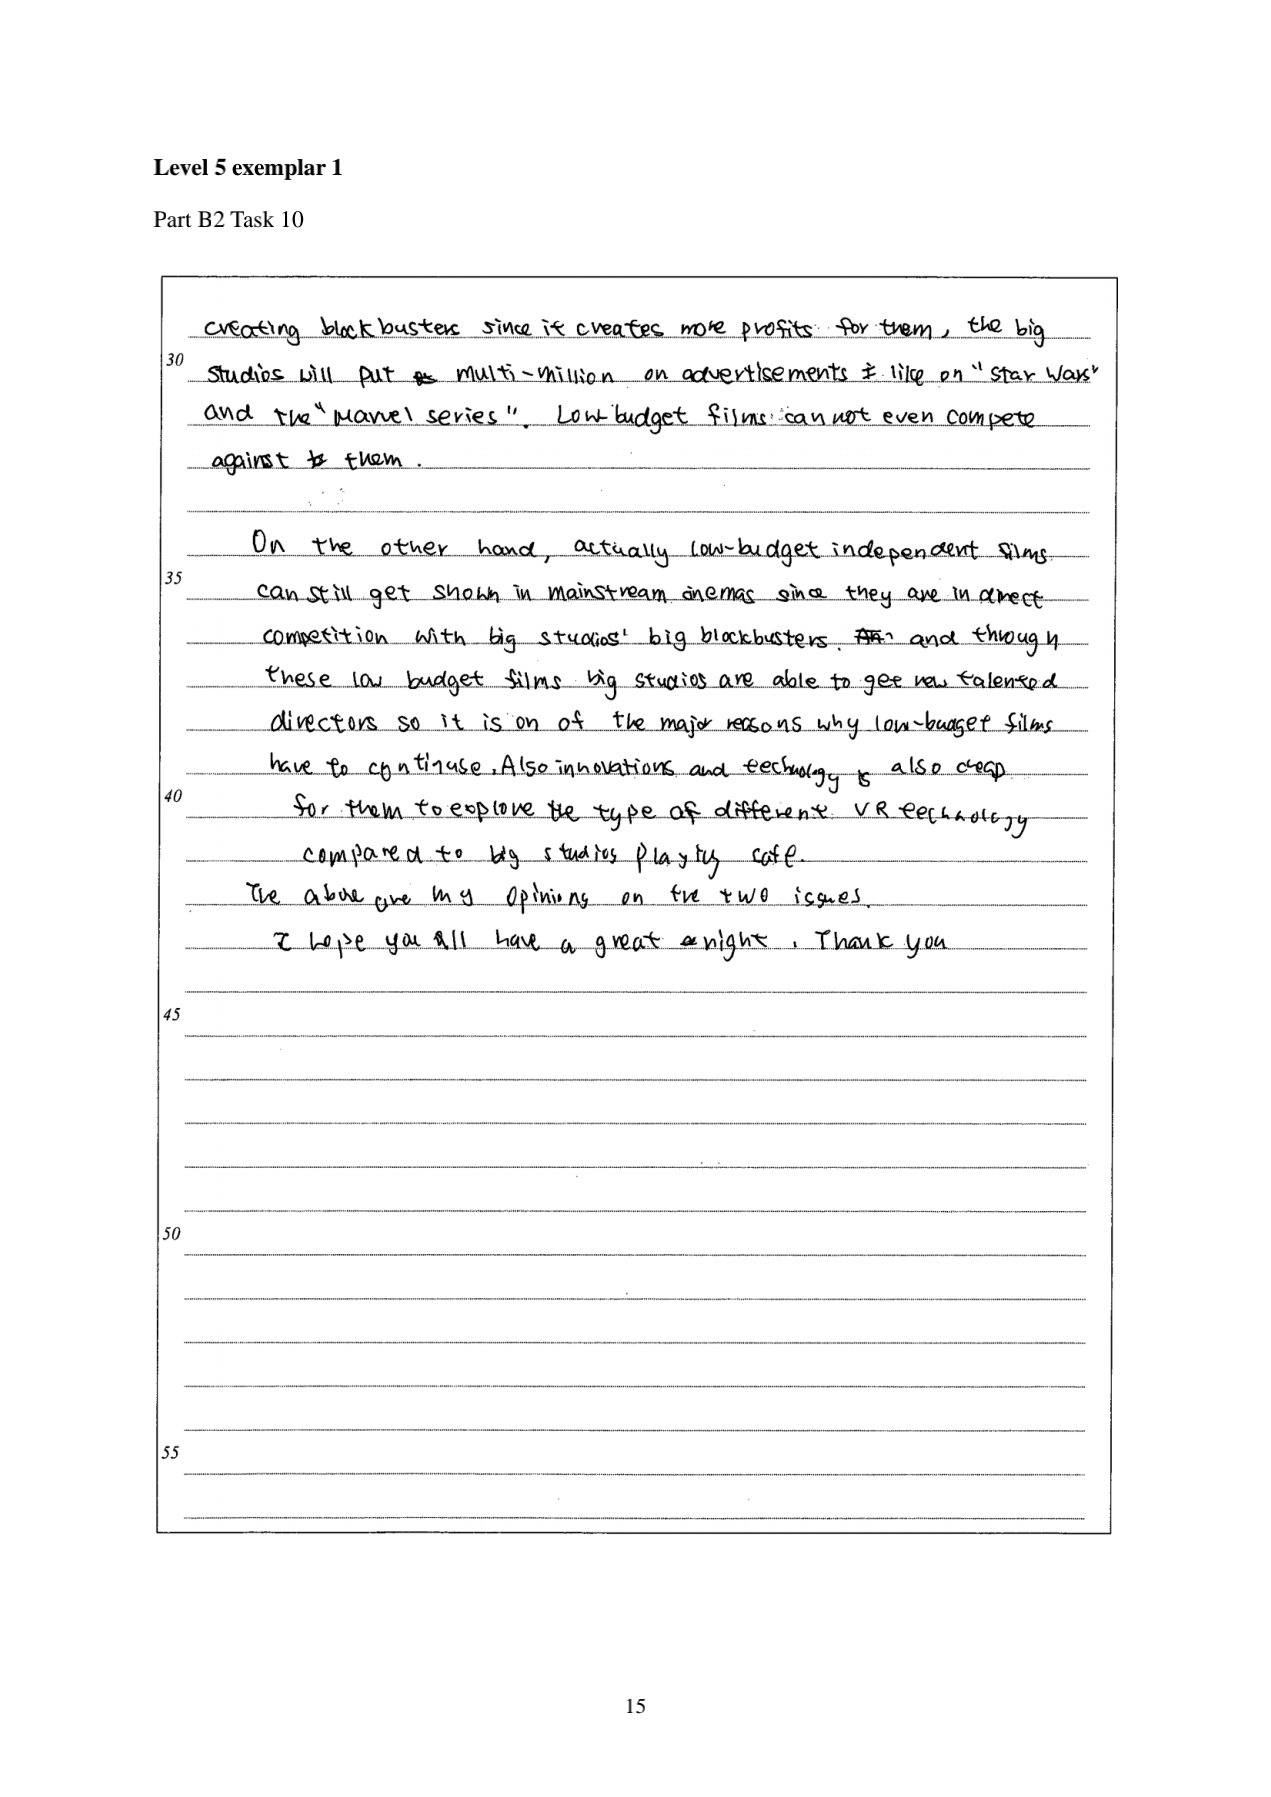 Level 5 exemplar 1
Part B2 Task 10
creating blockbusters since it creates more profits for them, the big
30
studios will put multi-million on advertisements like on "Star Wars"
and the "Marvel series". Low budget films can not even compete
against them.
On the other hand, actually low-budget independent films
35
can still get shown in mainstream cinemas since they are in direct
competition with big studios' big blockbusters. and through
these low budget films big studios are able to get new talented
directors so it is on of the major reasons why low-budget films
have to continuse. Also innovations and technology is also cheap
40
for them to explore the type of different VR technology
compared to big studios playing safe.
The above are my opinions on the two issues.
I hope you all have a great night. Thank you
45
50
55
15